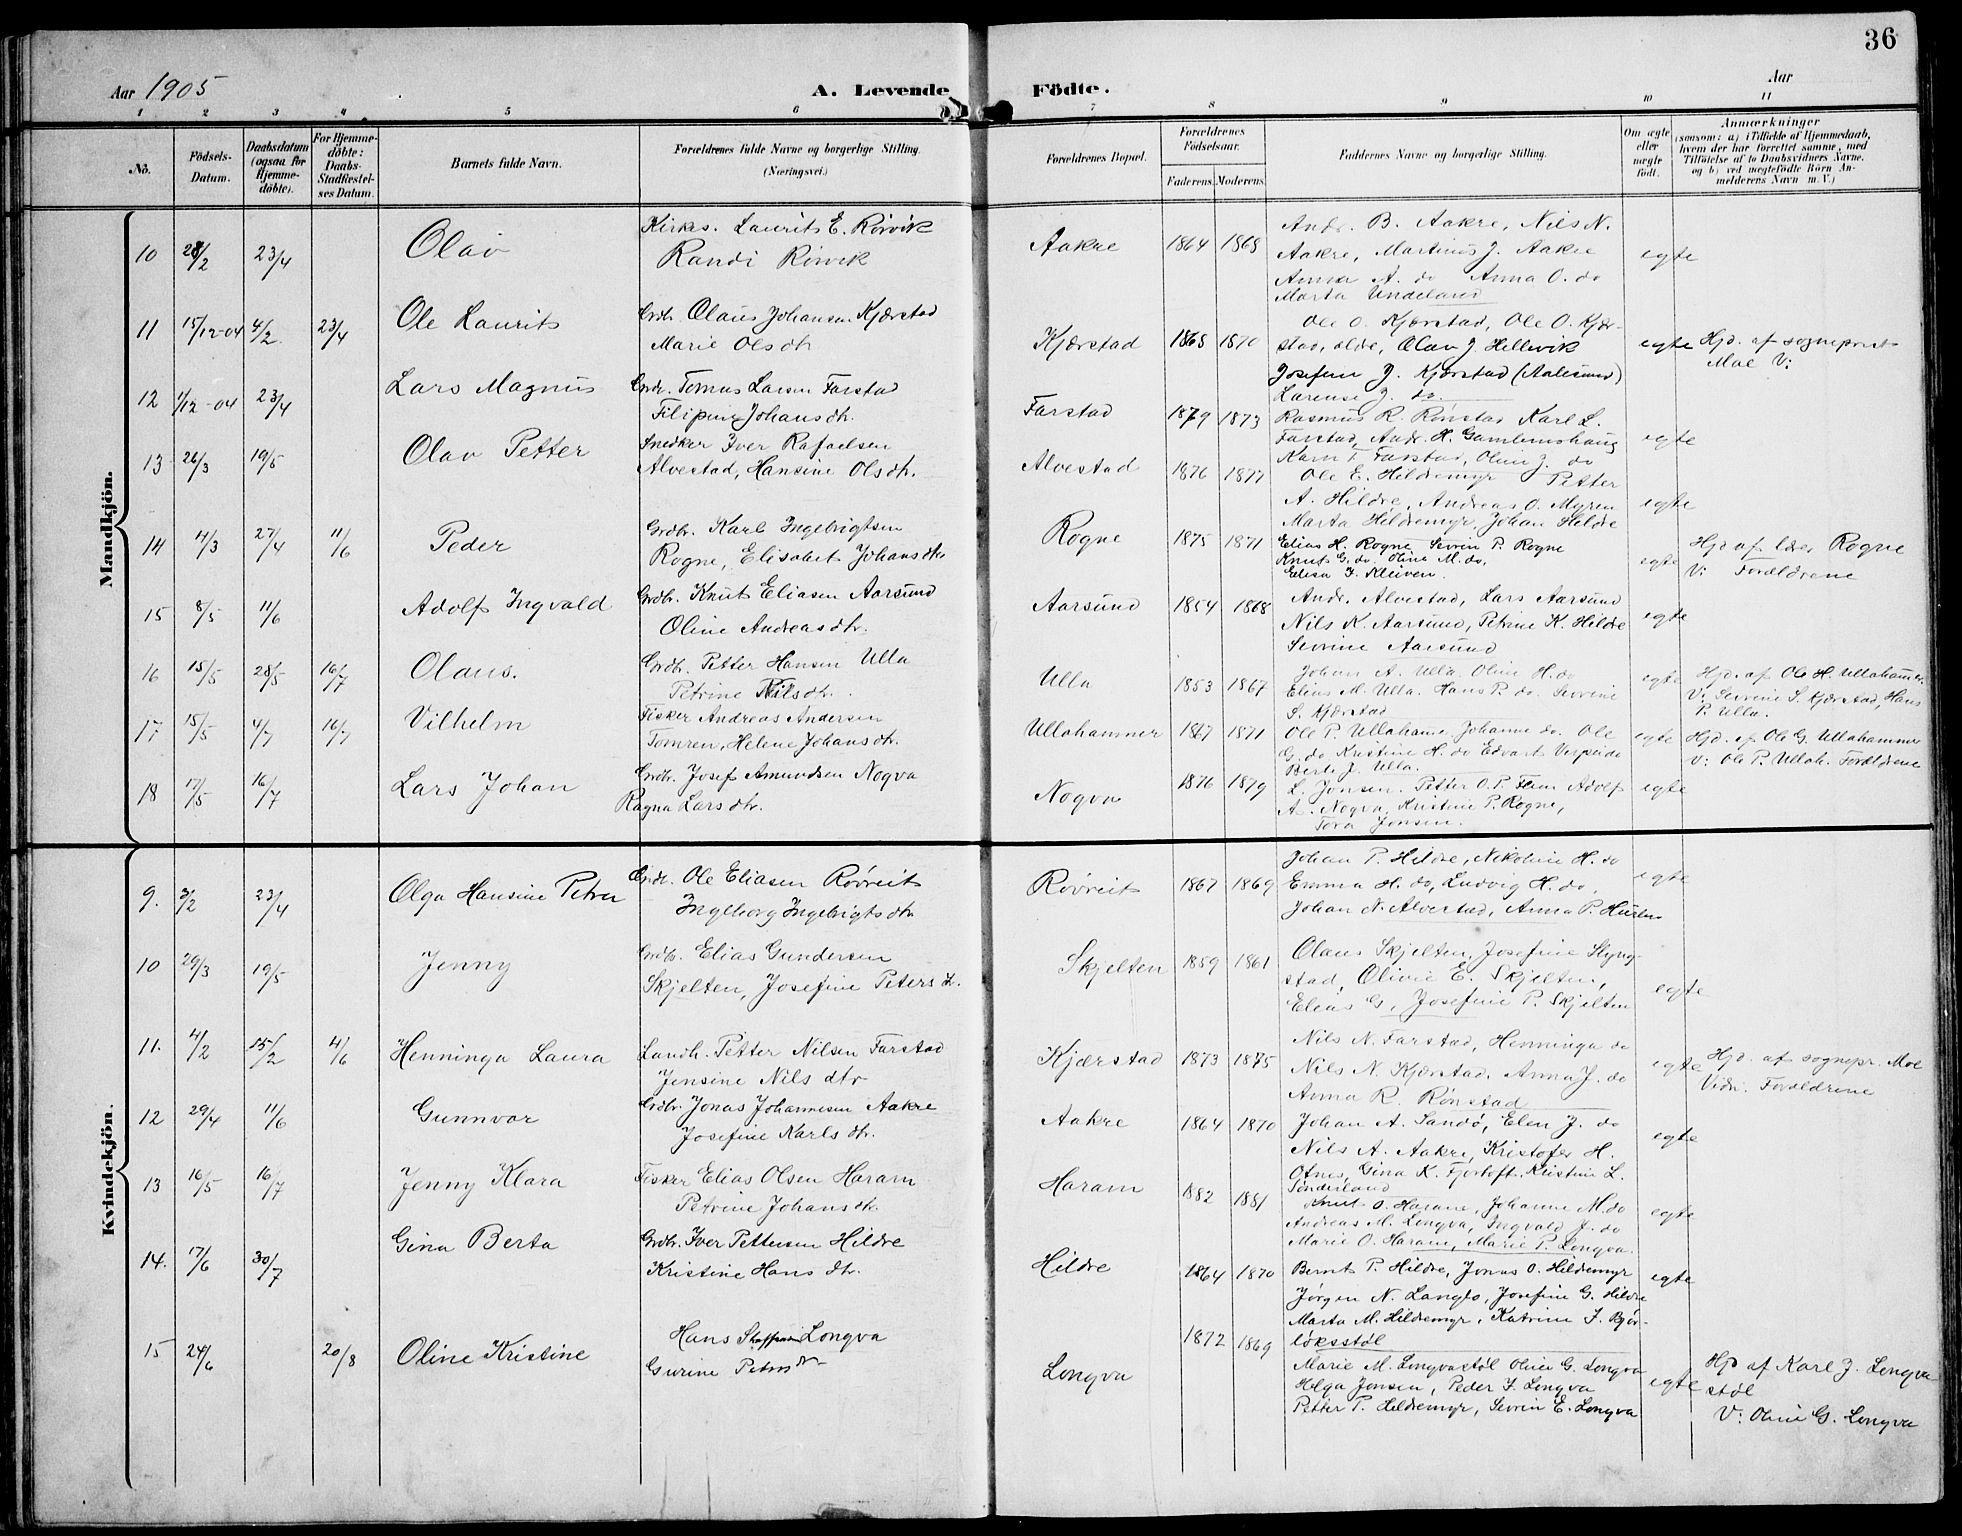 36
Aar 1905
A. Levende Födte.
Aar
1 2 3 4 5 6 7 8 9 10 11
No.
Födsels-Datum.
Daabsdatum (ogsaa for Hjemme-döbte).
For Hjemme-döbte: Daabs-Stadfæstelses Datum.
Barnets fulde Navn.
Forældrenes fulde Navne og borgerlige Stilling. (Næringsvei.)
Forældrenes Bopæl.
Forældrenes Födselsaar.
Faderens. Moderens.
Faddernes Navne og borgerlige Stilling.
Om ægte eller uægte födt.
Anmærkninger
(saasom: a) i Tilfælde af Hjemmedaab, hvem der har forrettet samme, med Tilföielse af to Daabsvidners Navne, og b) ved uægtefödte Börn Anmelderens Navn m. V.)
Mandkjön.
10 28/2 23/4 Olav Kirkes. Laurits E. Rörvik
Randi Rörvik Aakre 1864 1868 Andr. B. Aakre, Nils N.
Aakre, Martinus J. Aakre
Anna A. do Anna O. do
Marta Undeland egte
11 15/12-04 4/2 23/4 Ole Laurits Grdb. Olaus Johansen Kjærstad
Marie Olsdtr. Kjærstad 1868 1870 Ole O. Kjærstad, Ole O. Kjær-
stad, aldre, Olav J. Hellevik
Josefine J. Kjærstad (Aalesund)
Laren­se J. do. egte Hjd. af sogneprest
Moe V:
12 1/12-04 23/4 Lars Magnus Grdb. Tomas Larsen Farstad
Filipine Johansdtr. Farstad 1879 1873 Rasmus R. Rönstad Karl L.
Farstad, Andr. H. Gamlemshaug
Karn T. Farstad, Oline J. do egte
13 26/3 19/5 Olav Petter Snedker Iver Rafaelsen
Alvestad, Hansine Olsdtr. Alvestad 1876 1877 Ole E. Hildremyr Petter
A. Hildre, Andreas O. Myren
Marta Hildremyr, Johan Hildre egte
14 11/3 27/4 11/6 Peder Grdbr. Karl Ingebrigtsen
Rogne, Elisabet Johansdtr Rogne 1875 1871 Elias H. Rogne Sevrin P. Rogne
Knut G. do. Oline M. do.
Elisa J. Kleiven. egte Hjd af lær Rogne
V: Forældrene
15 8/5 11/6 Adolf Ingvald Grdbr. Knut Eliasen Aarsund
Oline Andreasdtr. Aarsund 1854 1868 Andr. Alvestad, Lars Aarsund
Nils K. Aarsund, Petrine K. Hildre
Sevrine Aarsund egte
16 15/5 28/5 16/7 Olaus. Grdbr. Petter Hansen Ulla
Petrine Nilsdtr. Ulla 1853 1867 Johan A. Ulla Oline H. do
Elias M. Ulla. Hans P. do. Sevrine
S. Kjærstad egte Hjd. af Ole H. Ullahammer.
V: Sevrine S. Kjærstad, Hans
P. Ulla.
17 15/5 4/7 16/7 Vilhelm Fisker Andreas Andersen
Tomren, Helene Johansdtr. Ullahammer 1867 1871 Ole P. Ullahamr. Johanne do. Ole
G. do Kristine H. do Edvart Verpeide
Berte J. Ulla. egte Hjd. af Ole G. Ullahammer
V: Ole P. Ullah. Forældrene
18 17/5 16/7 Lars Johan Grdbr. Josef Amundsen Nogva
Ragna Larsdtr. Nogva 1876 1879 L. Jonsen. Petter O. P. Flem Adolf
A. Nogva, Kristine P. Rogne,
Tora Jonsen. egte
Kvindekjön.
9. 3/2 23/4 Olga Hansine Petra Grdr. Ole Eliasen Rövreit
Ingeborg Ingebrigtsdtr Rövreit 1867 1869 Johan P. Hildre, Nikoline H. do
Emma H. do, Ludvig H. do.
Johan N. Alvestad, Anna P. egte
10 29/3 19/5 Jenny Grdbr. Elias Gundersen
Skjelten, Josefine Petersdtr. Skjelten 1859 1861 Olaus Skjelten, Josefine Slyng-
stad, Olivie E. Skjelten,
Elias G, Josefine P. Skjelten egte
11. 4/2 15/2 4/6 Henninga Laura Landh. Petter Nilsen Farstad
Jensine Nilsdtr Kjærstad 1873 1875 Nils N. Farstad, Henninga do
Nils N. Kjærstad. Anna J. do
Anna R. Rönstad egte Hjd. af sognepr. Moe
Vidn. Forældrene
12 29/4 11/6 Gunnvor Grdbr. Jonas Johannesen Aakre
Josefine Karlsdtr. Aakre 1864 1870 Johan A. Sandö, Elen J. do
Nils A. Aakre, Kristofer H.
Otnes, Gina K. Fjortoft. Kristine L.
Sönderland egte
13 16/5 16/7 Jenny Klara Fisker Elias Olsen Haram
Petrine Johansdtr Haram 1882 1881 Knut O. Haram, Johanne M. do
Andreas M. Longva, Ingvald J. do
Marie O. Haram, Marie P. Longva. egte
14. 17/6 30/7 Gina Berta Grdbr. Iver Pettersen Hildre
Kristine Hansdtr. Hildre 1864 1870 Bernt P. Hildre, Jonas O. Hildremyr
Jørgen N. Langlo, Josefine G. Hildre
Marta M. Hildremyr, Katrine J. Bjør-
løksstøl egte
15 24/6 20/8 Oline Kristine Hans Longva
Gurine Petersdtr Longva 1872 1869 Marie M. Longvastøl Oline G. Longva
Helga Jonsen, Peder J. Longva
Petter P. Hildremyr, Sevrin E. Longva egte Hjd af Karl J. Longva
støl
V: Oline G. Longva